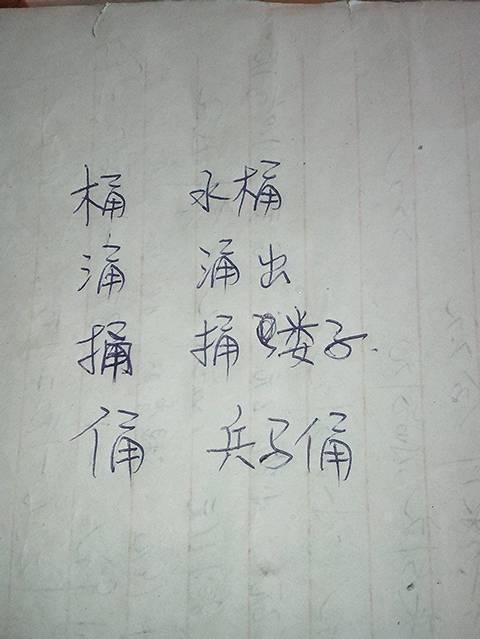 桶 水桶
涌 涌出
捅 捅娄子.
俑 兵马俑